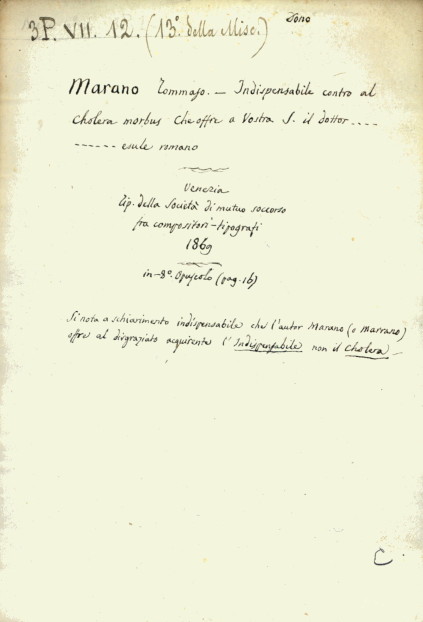 Dono
3P. VII. 12. (13º della Misc.)
Marano Tommaso. — Indispensabile contro al
cholera morbus che offre a Vostra S. il dottor ....
------ esule romano
Venezia
tip. della Società di mutuo soccorso
fra compositori-tipografi
1869
in-8º. Opuscolo (pag. 16)
Si nota a schiarimento indispensabile che l'autor Marano (o Marrano)
offre al disgraziato acquirente l'Indispensabile non il cholera —
C.